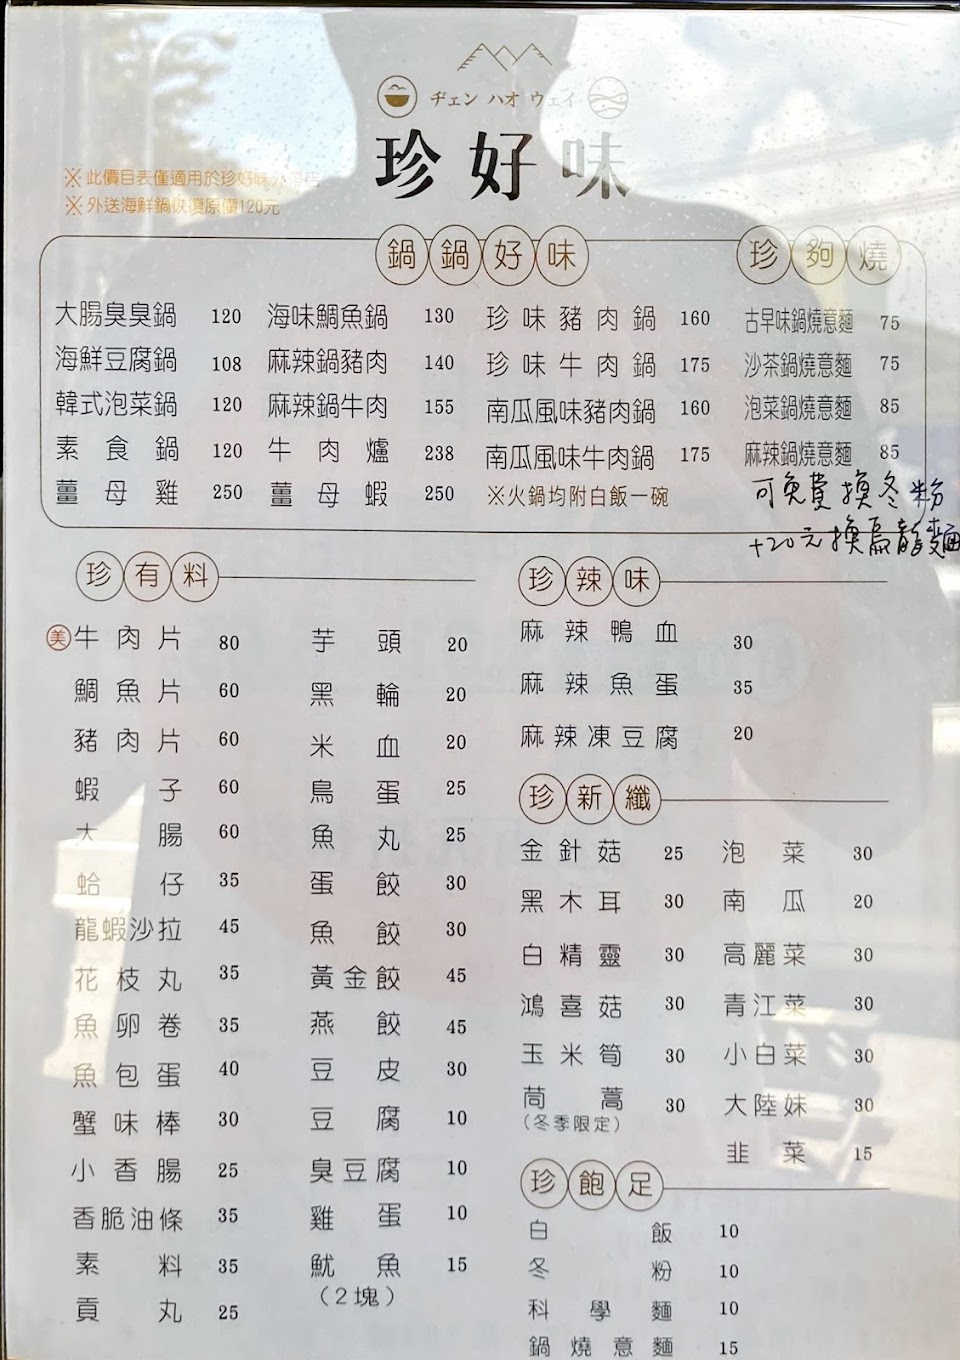 ヂェン ハオ ウェイ
珍好味
※此價目表僅適用於珍好味外帶店
※外送海鮮鍋恢復原價120元
鍋鍋好味
大腸臭臭鍋 120
海鮮豆腐鍋 108
韓式泡菜鍋 120
素食鍋 120
薑母雞 250
海味鯛魚鍋 130
麻辣鍋豬肉 140
麻辣鍋牛肉 155
牛肉爐 238
薑母蝦 250
珍味豬肉鍋 160
珍味牛肉鍋 175
南瓜風味豬肉鍋 160
南瓜風味牛肉鍋 175
※火鍋均附白飯一碗
珍夠燒
古早味鍋燒意麵 75
沙茶鍋燒意麵 75
泡菜鍋燒意麵 85
麻辣鍋燒意麵 85
可免費換冬粉
+20元換烏龍麵
珍有料
美 牛肉片 80
鯛魚片 60
豬肉片 60
蝦子 60
大腸 60
蛤仔 35
龍蝦沙拉 45
花枝丸 35
魚卵卷 35
魚包蛋 40
蟹味棒 30
小香腸 25
香脆油條 35
素料 35
貢丸 25
芋頭 20
黑輪 20
米血 20
鳥蛋 25
魚丸 25
蛋餃 30
魚餃 30
黃金餃 45
燕餃 45
豆皮 30
豆腐 10
臭豆腐 10
雞蛋 10
魷魚 15
(2塊)
珍辣味
麻辣鴨血 30
麻辣魚蛋 35
麻辣凍豆腐 20
珍新纖
金針菇 25
黑木耳 30
白精靈 30
鴻喜菇 30
玉米筍 30
茼蒿 30
(冬季限定)
泡菜 30
南瓜 20
高麗菜 30
青江菜 30
小白菜 30
大陸妹 30
韭菜 15
珍飽足
白飯 10
冬粉 10
科學麵 10
鍋燒意麵 15